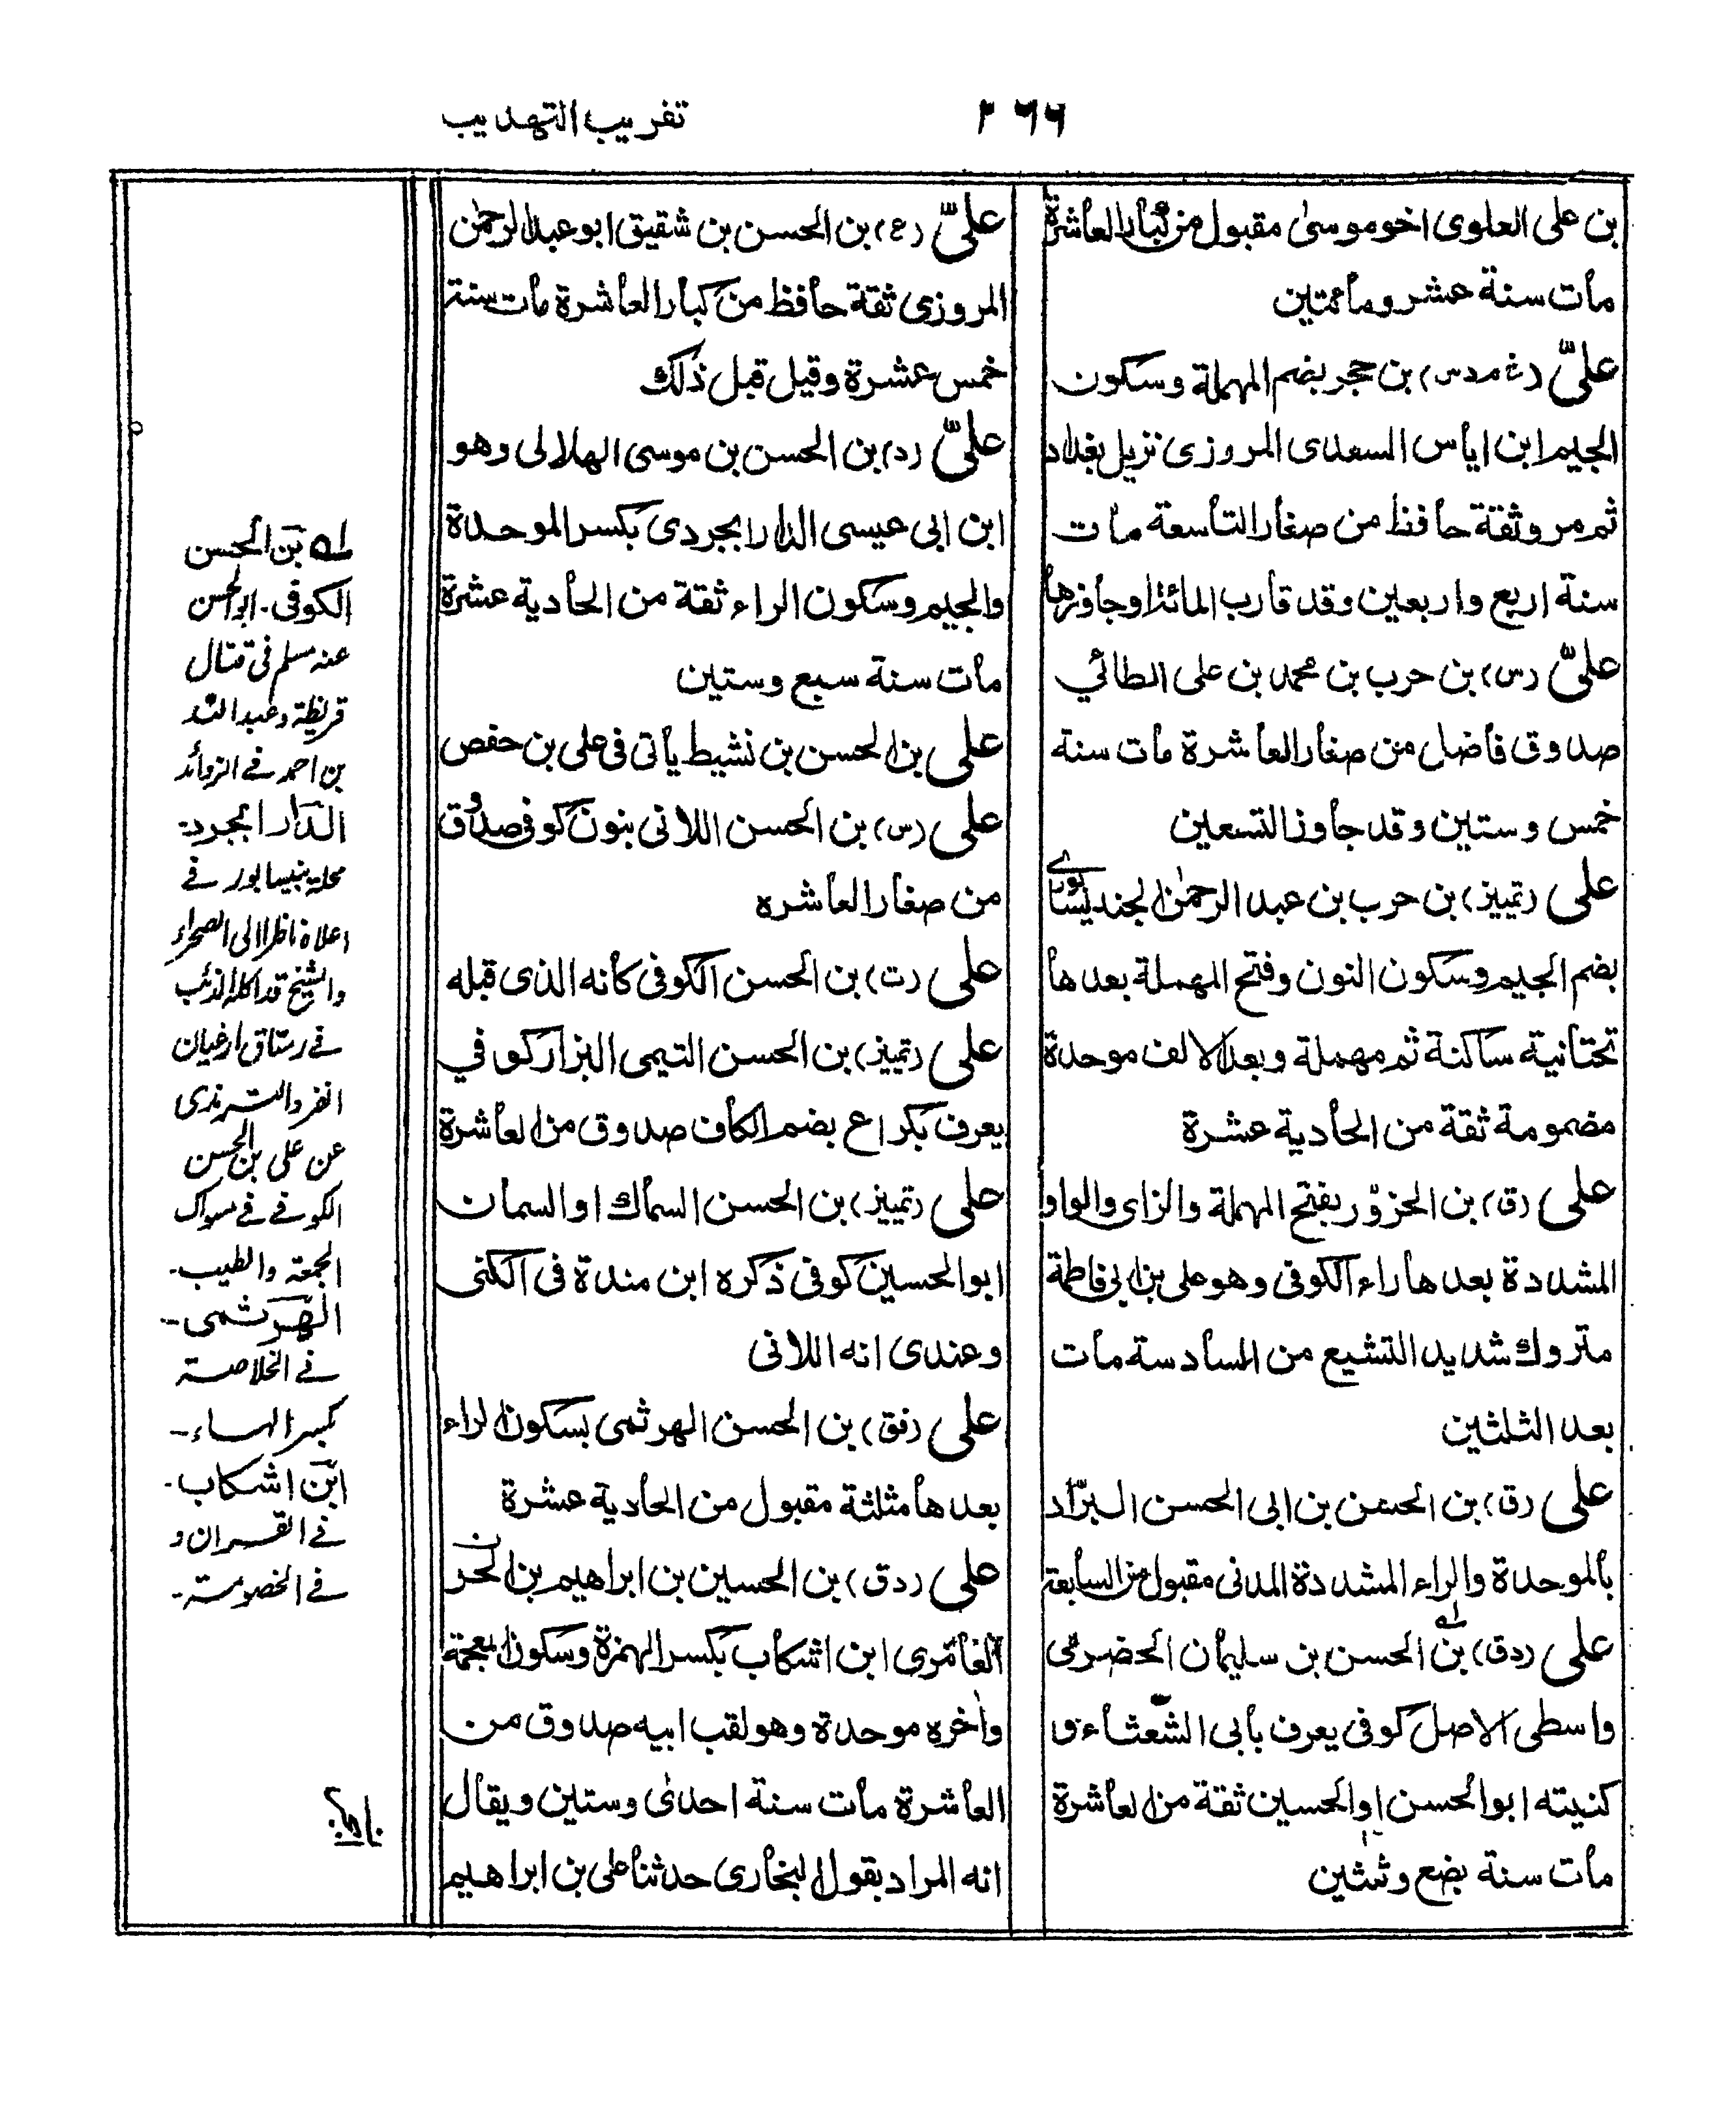 ٢٦٦
تقريب التهذيب
بن على العلوى اخو موسىٰ مقبول من كبار العاشرة
مات سنة عشر ومائتين
علىّ (خ م د س) بن حجر بضم المهملة وسكون
الجيم ابن اياس السعدى المروزى نزيل بغداد
ثم مرو ثقة حافظ من صغار التاسعة مات
سنة اربع واربعين وقد قارب المائة او جاوزها
علىّ (س) بن حرب بن محمد بن على الطائي
صدوق فاضل من صغار العاشرة مات سنة
خمس وستين وقد جاوز التسعين
على (تمييز) بن حرب بن عبد الرحمٰن الجنديسابورے
بضم الجيم وسكون النون وفتح المهملة بعدها
تحتانية ساكنة ثم مهملة وبعد الالف موحدة
مضمومة ثقة من الحادية عشرة
على (ق) بن الحزوّر بفتح المهملة والزاى والواو
المشددة بعدها راء الكوفى وهو على بن ابى فاطمة
متروك شديد التشيع من السادسة مات
بعد الثلثين
على (ق) بن الحسن بن ابى الحسن البرّاد
بالموحدة والراء المشددة المدنى مقبول من السابعة
على (د ق) بن الحسن بن سليمان الحضرمى
واسطى الاصل كوفى يعرف بأبى الشعثاء و
كنيته ابو الحسن او الحسين ثقة من العاشرة
مات سنة بضع وثلثين
علىّ (ع) بن الحسن بن شقيق ابو عبد الرحمٰن
المروزى ثقة حافظ من كبار العاشرة مات سنة
خمس عشرة وقيل قبل ذلك
علىّ (د) بن الحسن بن موسى الهلالى وهو
ابن ابى عيسى الدارابجردى بكسر الموحدة
والجيم وسكون الراء ثقة من الحادية عشرة
مات سنة سبع وستين
على بن الحسن بن نشيط يأتى فى على بن حفص
على (س) بن الحسن اللانى بنون كوفى صدوق
من صغار العاشره
على (ت) بن الحسن الكوفى كأنه الذى قبله
على (تمييز) بن الحسن التيمى البزار كوفي
يعرف بكراع بضم الكاف صدوق من العاشرة
على (تمييز) بن الحسن السماك او السمان
ابو الحسين كوفى ذكره ابن مندة فى الكنى
وعندى انه اللانى
على (فق) بن الحسن الهرثمى بسكون الراء
بعدها مثلثة مقبول من الحادية عشرة
على (د ق) بن الحسين بن ابراهيم بن الحر
العامرى ابن اشكاب بكسر الهمزة وسكون المعجمة
واٰخره موحدة وهو لقب ابيه صدوق من
العاشرة مات سنة احدىٰ وستين ويقال
انه المراد بقول البخارى حدثنا على بن ابراهيم
له بن الحسن
الكوفى - ابو الحسن
عنه مسلم فى قتال
قريظة وعبد الله
بن احمد فے الزوائد
الدارابجرد -
محلة بنيسابور فے
اعلاه ناظرا الى الصحراء
والشيخ قد اكله الذئب
فے رستاق ارغيان
انفرد الترمذى
عن على بن الحسن
الكوفے فے سواك
الجمعة والطيب -
الهرثمى -
فے الخلاصة
بكسر الهاء -
ابن اشكاب -
فے القران و
فے الخصومة -